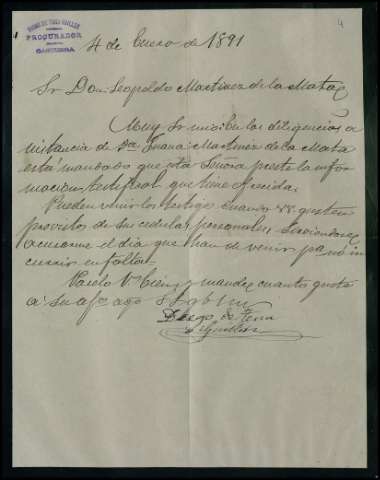 PROCURADOR
4
4 de Enero de 1891
Sr Don Leopoldo Martinez de la Mata
Muy Sr mio: En las diligencias a
instancia de Da Juana Martinez de la Mata
está mandado que esta Señora preste la infor
macion testifical que tiene ofrecida.
Pueden venir los testigos cuando VV. gusten
provistos de sus cedulas personales sirviendose
avisarme el dia que han de venir pa no in
currir en falta.
Páselo V. bien y mande cuanto guste
a su afo
Diego de
Guillen